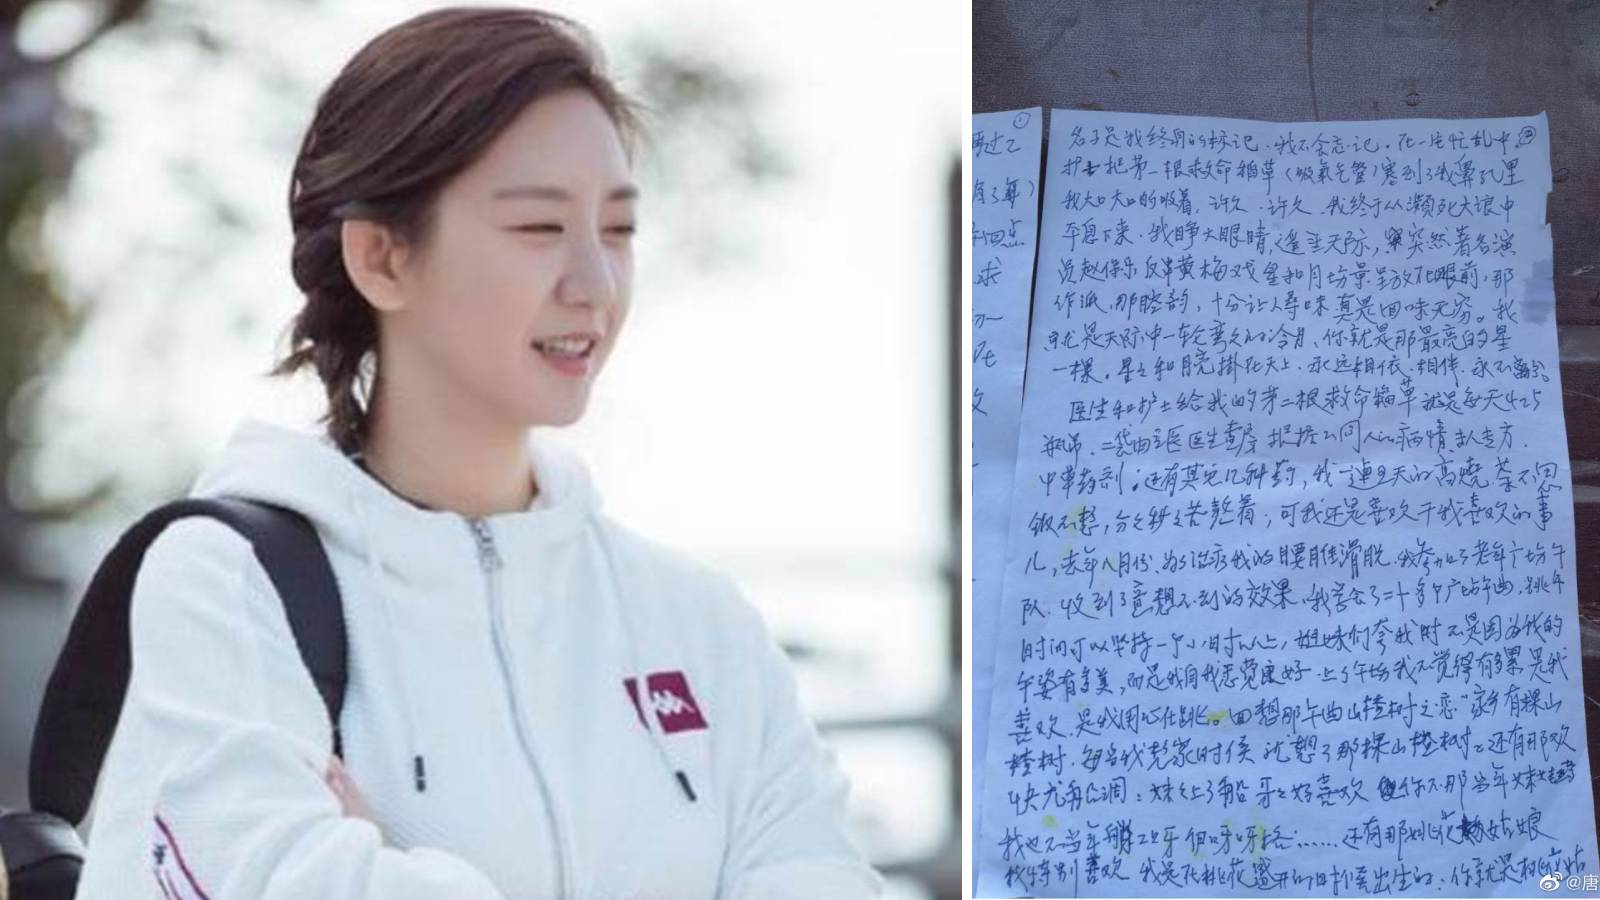 名字是我终身的标记，我不会忘记。在一片忙乱中。
护士把第一根救命稻草（吸氧气管）塞到了我鼻孔里
我大口大口的吸着，许久、许久、我终于从濒死大浪中
平息下来，我睁大眼睛，遥望天际，突然著名演
员赵保乐反串黄梅戏星和月场景呈放在眼前，那
作派，那腔韵，十分让人寻味真是回味无穷。我
就是天际中一轮弯弯的冷月、你就是那最亮的星
一棵。星星和月亮掛在天上、永远相依、相伴、永不
医生和护士给我的第二根救命稻草就是每天425
二袋由主医医生查房根据不同人的病情
中草药剂；还有其它几种药，我一连旦天的高烧，茶不思
饭不想，分分秒秒苦熬着；可我还是喜欢干我喜欢的事
儿，去年八月份、为了治疗我的腰脽滑脱，我参加了老年广场午
队，收到了意想不到的效果，我学会了二十多个广场午曲，跳午
时间可以坚持一个小时以上，姐妹们夸我时不是因为我的
午姿有多美，而是我自我感觉良好 上了午场我不觉得有多累是我
喜欢，是我用心在跳。回想那午曲山楂树之恋“家乡有棵山
楂树，每当我想家的时候 就想了那棵山楂树” 还有那欢
快 妹妹上了船 哥哥好喜欢
还有那桃花姑娘
我特别喜欢 我是在桃花盛开的时候出生的；你就是桃
再过2
四点
求
文
①
@唐